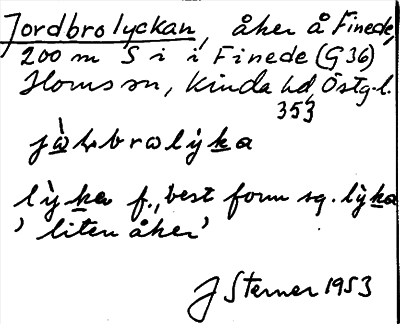 Jordbrolyckan, åker å Finede,
200 m S i i Finede (G 36)
Horns sn, Kinda hd, Östg.l.
353
lỳka f., best form sg. lỳka
' liten åker'
J Sterner 1953